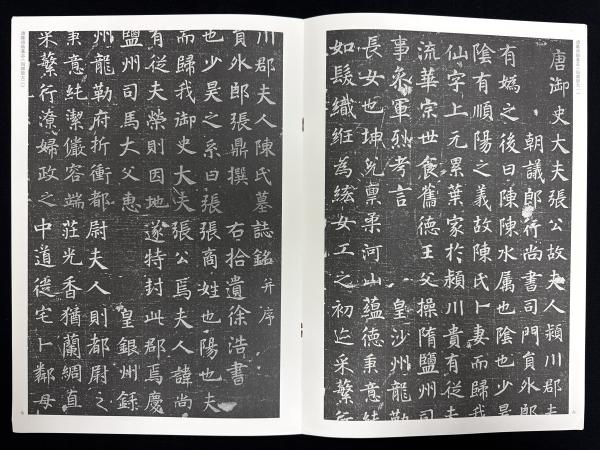 唐御史大夫張公故夫人潁川郡夫
朝議郎行尚書司門員外郎
有媯之後曰陳陳水屬也陰也少昊
陰有順陽之義故陳氏卜妻而歸我
仙字上元累葉家於潁川貴有從夫
流華宗世食舊德王父操隋鹽州司
事參軍烈考言 皇沙州龍勒
長女也坤皃禀柔河山藴德秉意純
如鬷織紝為紘女工之初迄采蘩行
川郡夫人陳氏墓誌銘并序
員外郎張鼎撰 右拾遺徐浩書
也少昊之系曰張張商姓也陽也夫
而歸我御史大夫張公焉夫人諱尚
有從夫榮則因地遂特封此郡焉慶
鹽州司馬大父惠 皇銀州錄
州龍勒府折衝都尉夫人則都尉之
秉意純潔儼容端莊光香猶蘭綢直
采蘩行潦婦政之中道徙宅卜鄰母